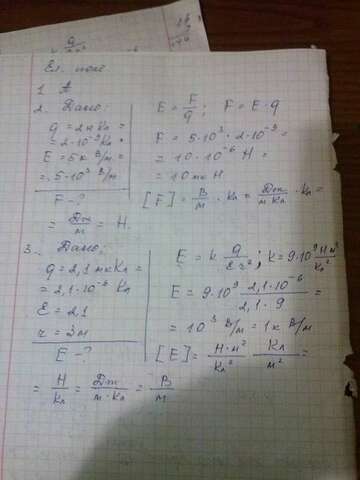 Эл. поле
1. А
2. Дано:
q = 2 нКл =
= 2·10⁻⁹ Кл
E = 5 к В/м =
= 5·10³ В/м
F - ?
E = F/q; F = E·q
F = 5·10³·2·10⁻⁹ =
= 10·10⁻⁶ Н =
= 10 мк Н
[F] = В/м · Кл = Дж/м Кл · Кл =
= Дж/м = Н.
3. Дано:
q = 2,1 мкКл =
= 2,1·10⁻⁶ Кл
ε = 2,1
r = 3м
E - ?
E = k q/ε r²; k = 9·10⁹ Н м²/Кл²
E = 9·10⁹ 2,1·10⁻⁶/2,1·9 =
= 10³ В/м = 1 к В/м
[E] = Н·м²/Кл² Кл/м² =
= Н/Кл = Дж/м·Кл = В/м